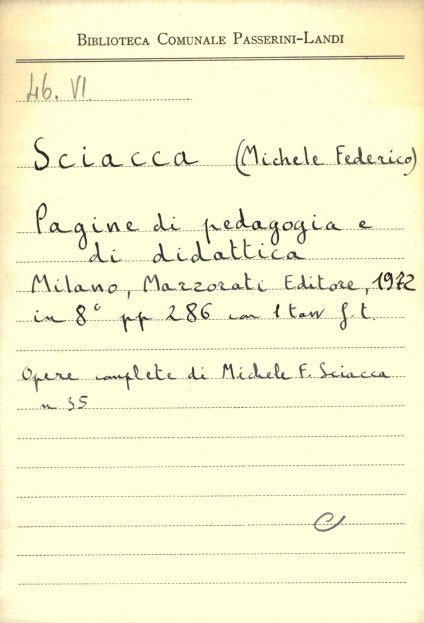 BIBLIOTECA COMUNALE PASSERINI-LANDI
46. VI.
Sciacca (Michele Federico)
Pagine di pedagogia e
di didattica
Milano, Marzorati Editore, 1972
in 8° pp 286 con 1 tav f. t.
Opere complete di Michele F. Sciacca
n 35
C